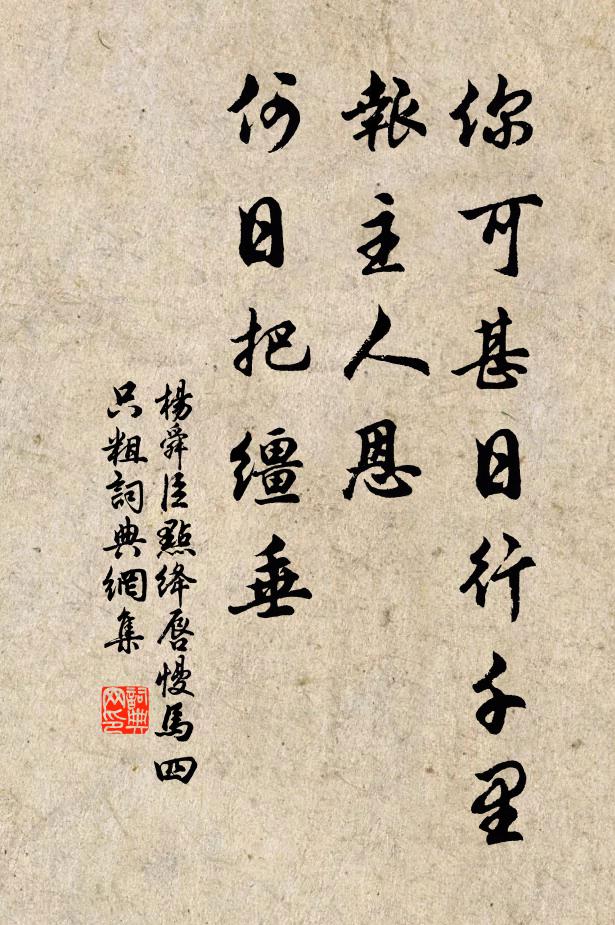 你可甚日行千里
報主人恩
何日把繮垂
楊舜臣點絳唇慢馬四
只粗詞典網集
詞典
网印